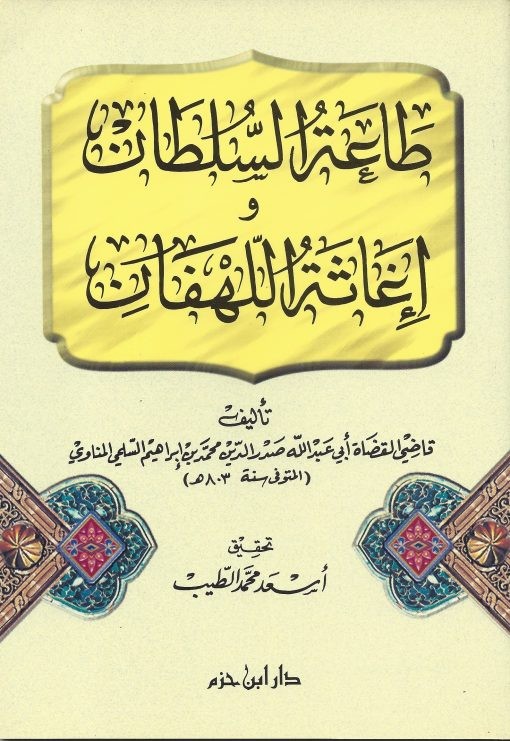 طَاعَةُ السُّلطَانْ
و
إِغَاثَةُ اللَّهْفَانِ
تأليف
قاضي القضاة أبي عبد الله صدر الدين محمد بن إبراهيم السلمي المناوي
(المتوفى سنة ٨٠٣هـ)
تحقيق
أسعد محمد الطيب
دار ابن حزم